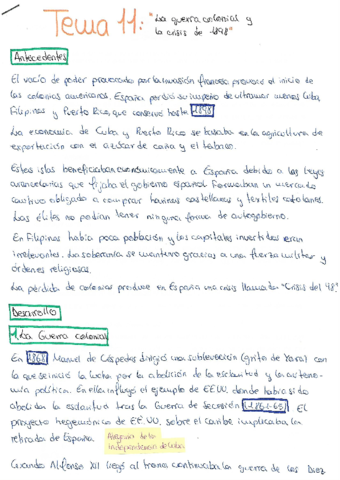 Tema 11: "La guerra colonial y
la crisis de 1898"
Antecedentes
El vacío de poder provocado por la invasión francesa provocó el inicio de
las colonias americanas. España perdió su imperio de ultramar menos Cuba,
Filipinas y Puerto Rico que conservó hasta 1898
La economía de Cuba y Puerto Rico se basaba en la agricultura de
exportación con el azúcar de caña y el tabaco.
Estas islas beneficiaban económicamente a España debido a las leyes
arancelarias que fijaba el gobierno español. Formaban un mercado
cautivo obligado a comprar harinas castellanas y textiles catalanes.
Las élites no podían tener ninguna forma de autogobierno.
En Filipinas había poca población y los capitales invertidos eran
irrelevantes. La soberanía se mantuvo gracias a una fuerza militar y
órdenes religiosas.
La pérdida de colonias produce en España una crisis llamada "Crisis del 98".
Desarrollo
1. La Guerra colonial
En 1868 Manuel de Céspedes dirigió una sublevación (grito de Yara) con
la que se inició la lucha por la abolición de la esclavitud y la autono-
mía política. En ella influyó el ejemplo de EE.UU. donde había sido
abolida la esclavitud tras la Guerra de Secesión (1861-65) El
proyecto hegemónico de EE.UU. sobre el Caribe implicaba la
retirada de España.
Alegoría de la
independencia de Cuba
Cuando Alfonso XII llegó al trono continuaba la guerra de los Diez